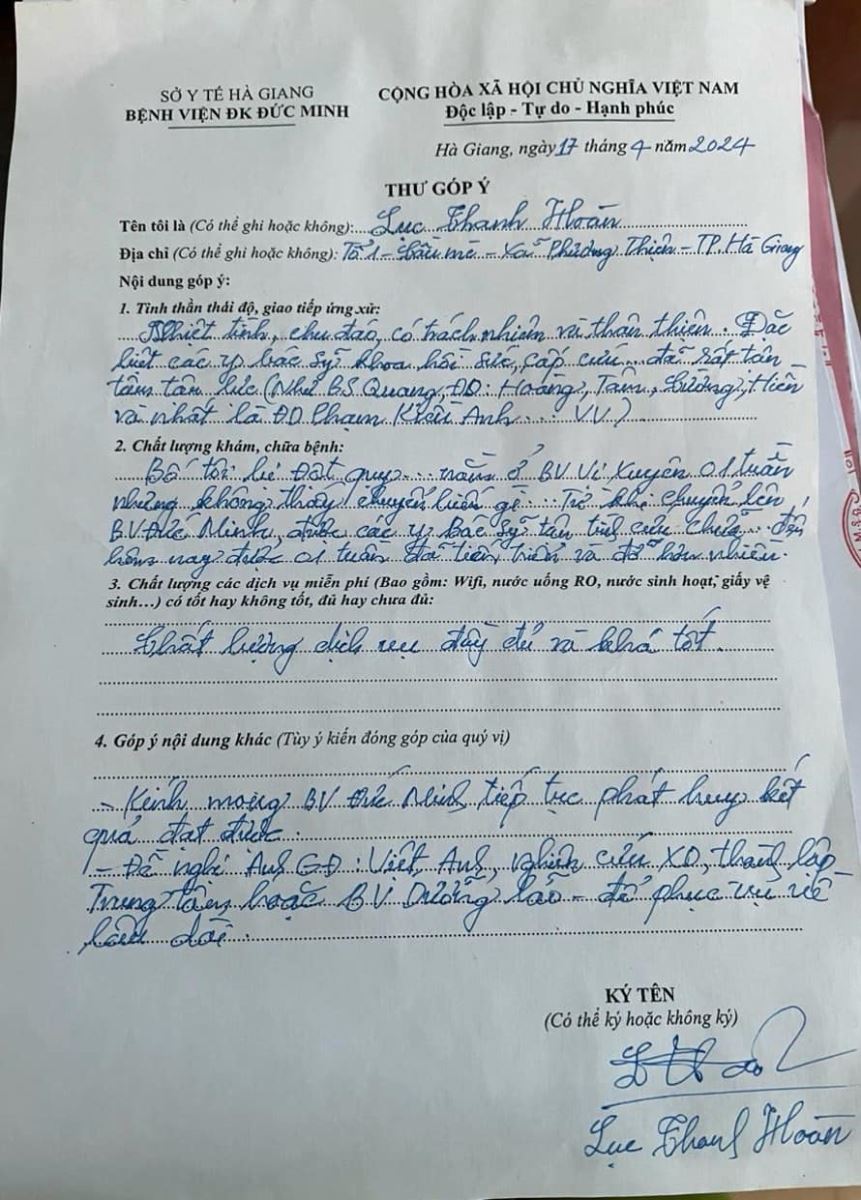 SỞ Y TẾ HÀ GIANG
BỆNH VIỆN ĐK ĐỨC MINH
CỘNG HÒA XÃ HỘI CHỦ NGHĨA VIỆT NAM
Độc lập - Tự do - Hạnh phúc
Hà Giang, ngày 17 tháng 4 năm 2024
THƯ GÓP Ý
Tên tôi là (Có thể ghi hoặc không): Lục Thanh Hoàn
Địa chỉ (Có thể ghi hoặc không): Tổ 1 - Cầu mè - Xã Phương Thiện - TP. Hà Giang
Nội dung góp ý:
1. Tinh thần thái độ, giao tiếp ứng xử:
Nhiệt tình, chu đáo, có trách nhiệm và thân thiện. Đặc
biệt các y bác sỹ khoa hồi sức, cấp cứu... đã rất tận
tâm tận lực (Như BS Quang, ĐD: Hoàng, Tâm, Cường, Hiền
và nhất là ĐD Phạm Kiều Anh.... VV)
2. Chất lượng khám, chữa bệnh:
Bố tôi bị Đột quỵ... nằm ở BV Vị Xuyên 01 tuần
nhưng không thấy chuyển biến gì... Từ khi chuyển lên
BV. Đức Minh, được các y Bác sỹ tận tình cứu chữa... đến
hôm nay được 01 tuần đã tiến triển và đỡ hơn nhiều.
3. Chất lượng các dịch vụ miễn phí (Bao gồm: Wifi, nước uống RO, nước sinh hoạt, giấy vệ
sinh...) có tốt hay không tốt, đủ hay chưa đủ:
Chất lượng dịch vụ đầy đủ và khá tốt.
4. Góp ý nội dung khác (Tùy ý kiến đóng góp của quý vị)
- Kính mong BV Đức Minh tiếp tục phát huy kết
quả đạt được.
- Đề nghị Anh GĐ: Việt Anh, nghiên cứu XD, thành lập
Trung tâm hoặc BV Dưỡng lão - để phục vụ về
lâu dài.
KÝ TÊN
(Có thể ký hoặc không ký)
Lục Thanh Hoàn